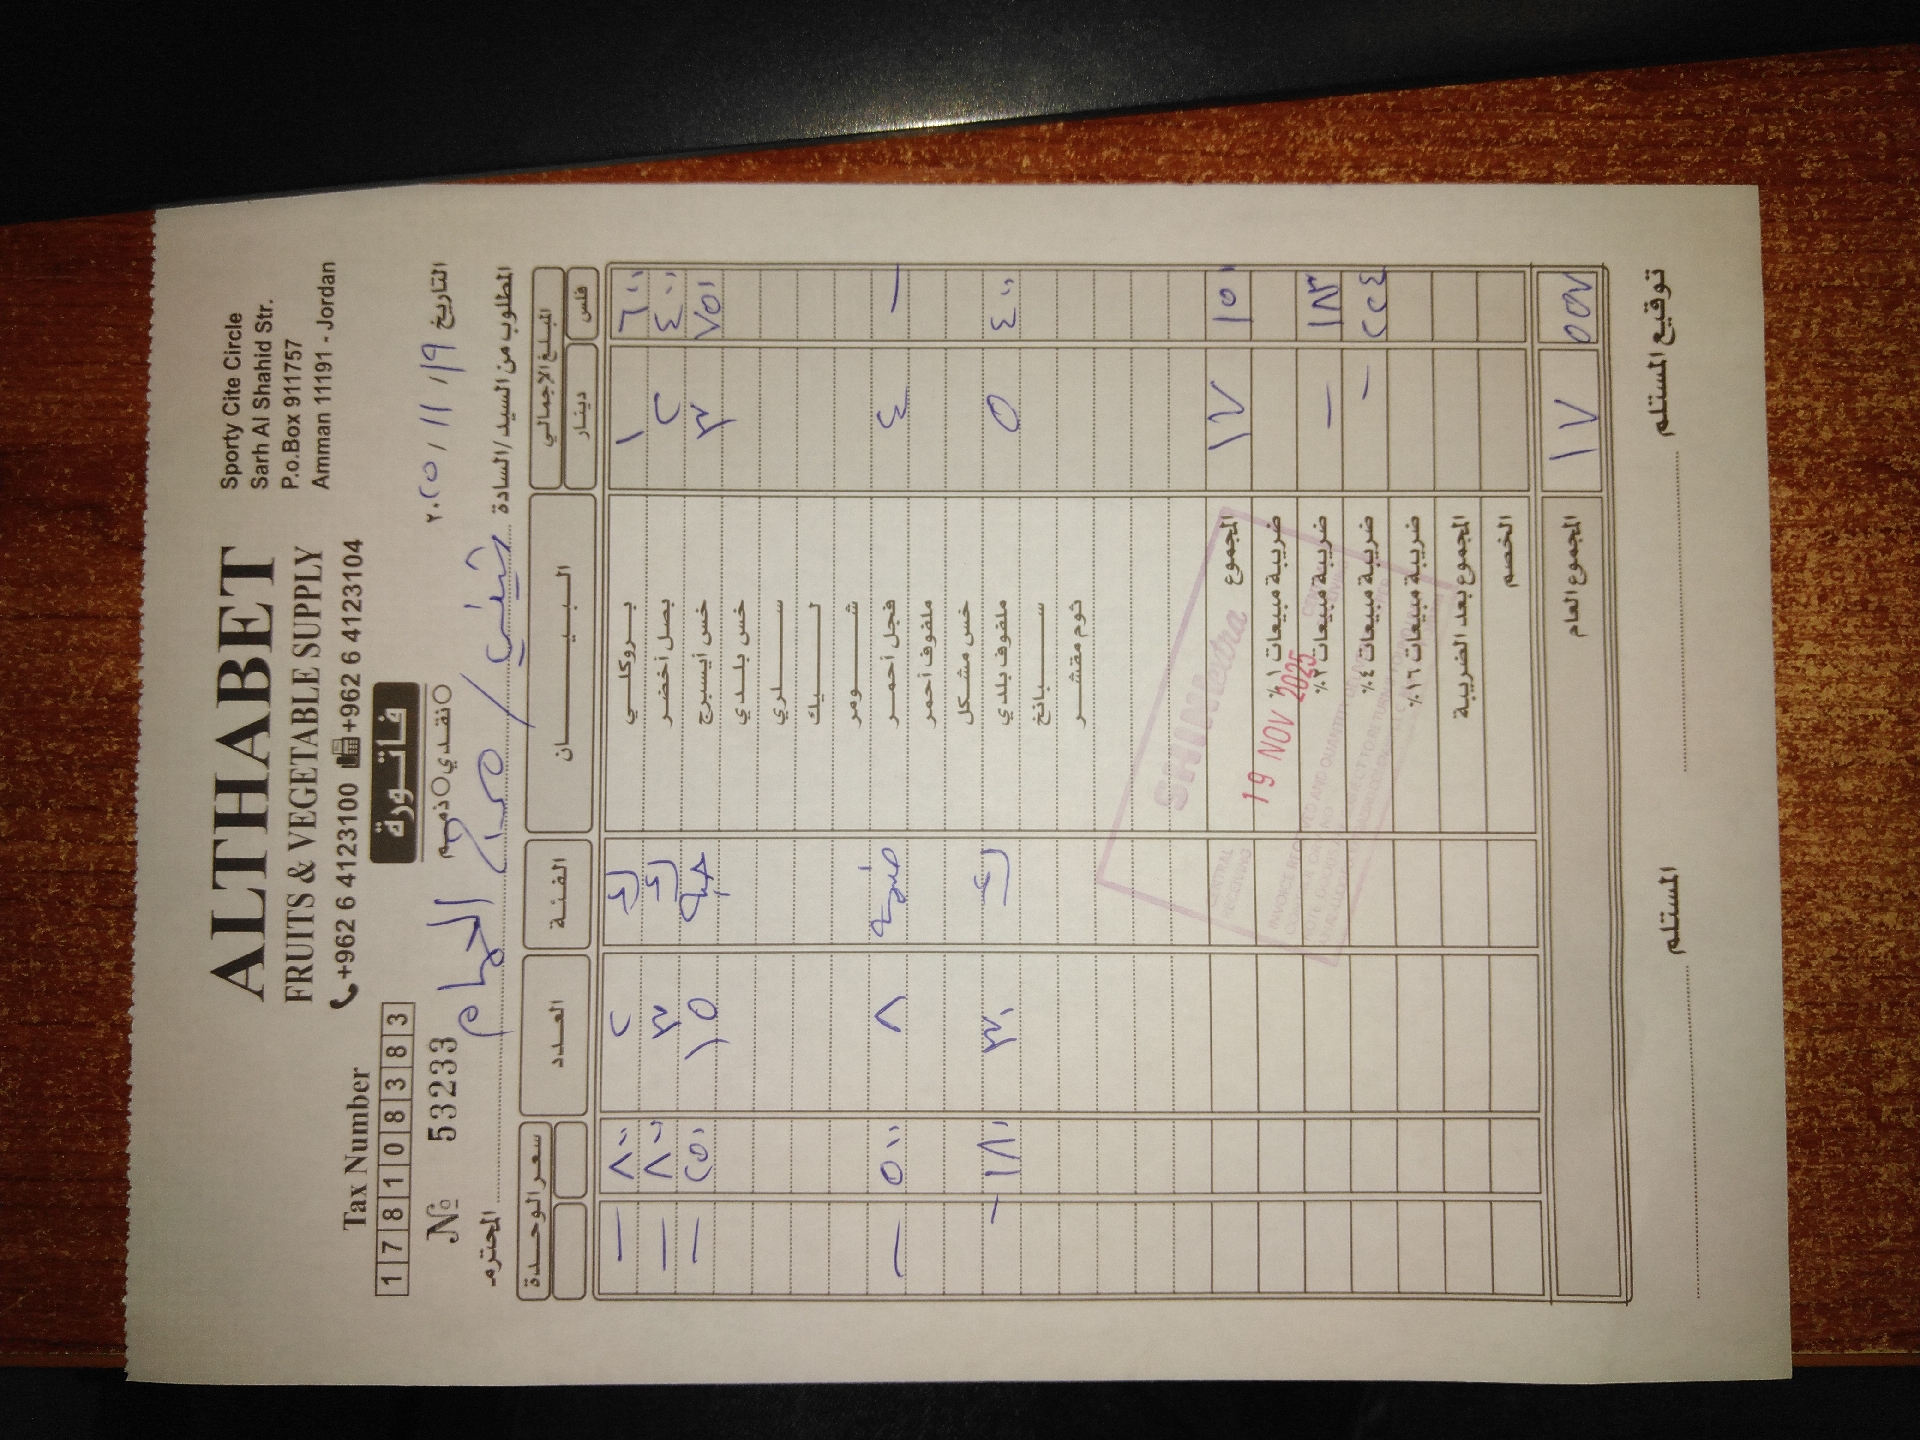 ALTHABET
FRUITS & VEGETABLE SUPPLY
+962 6 4123100 +962 6 4123104
Sporty Cite Circle
Sarh Al Shahid Str.
P.o.Box 911757
Amman 11191 - Jordan
Tax Number
1 7 8 1 0 8 3 8 3
فاتورة
نقدي ذمم
№ 53233
التاريخ ١٩ / ١١ / ٢٠٢٥
المطلوب من السيد/السادة / مرج الحمام المحترم
المبلغ الاجمالي البيـــــان الفئة العدد سعر الوحدة
فلس دينار
٦٠٠ ١ بروكلي ك ٢ ٨٠٠ —
٤٠٠ ٢ بصل أخضر ك ٣ ٨٠٠ —
٧٥٠ ٣ خس أيسبرج حبة ١٥ ٢٥٠ —
خس بلدي
سلري
ليك
شومر
— ٤ فجل أحمر ٨ ٥٠٠ —
ملفوف أحمر
خس مشكل
٤٠٠ ٥ ملفوف بلدي ك ٣٠ ١٨٠ —
سبانخ
ثوم مقشر
١٥٠ ١٧ المجموع
ضريبة مبيعات ١٪
١٨٣ — ضريبة مبيعات ٢٪
٢٢٤ — ضريبة مبيعات ٤٪
ضريبة مبيعات ١٦٪
المجموع بعد الضريبة
الخصم
٥٥٧ ١٧ المجموع العام
CENTRAL
RECEIVING
19 NOV 2025
توقيع المستلم المستلم